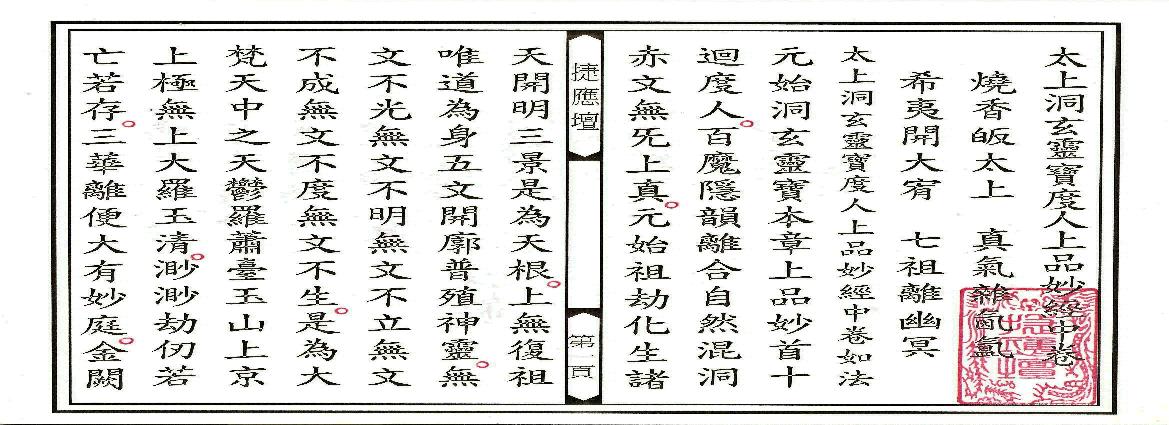 太上洞玄靈寶度人上品妙經中卷
燒香皈太上　真氣雜氤氳
希夷開大宥　七祖離幽冥
太上洞玄靈寶度人上品妙經中卷如法
元始洞玄靈寶本章上品妙首十
迴度人。百魔隱韻離合自然混洞
赤文無旡上真。元始祖劫化生諸
捷應壇
第一頁
天開明三景是為天根。上無復祖
唯道為身五文開廓普殖神靈。無
文不光無文不明無文不立無文
不成無文不度無文不生。是為大
梵天中之天鬱羅蕭臺玉山上京
上極無上大羅玉清。渺渺劫仞若
亡若存。三華離便大有妙庭。金闕